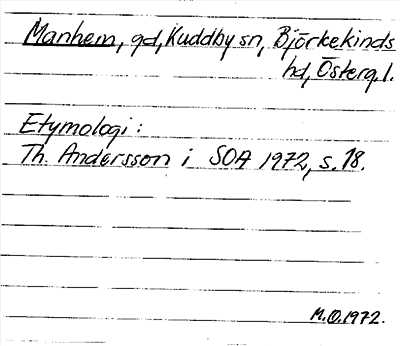 Manhem, gd, Kuddby sn, Björkekinds
hd, Österg.l.
Etymologi:
Th. Andersson i SOA 1972, s. 18.
M.O. 1972.